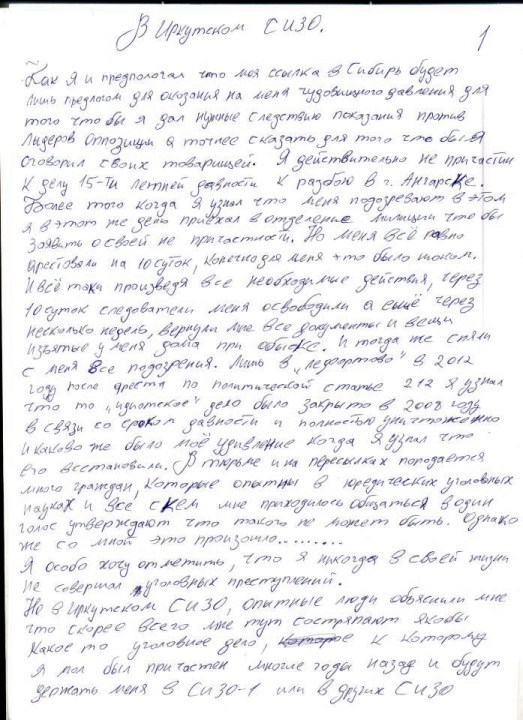 В Иркутском СИЗО.
1
Как я и предпологал что моя ссылка в Сибирь будет
лишь предлогом для оказания на меня чудовищного давления для
того что бы я дал нужные следствию показания против
Лидеров Оппозиции а точнее сказать для того что бы я
оговорил своих товарищей. Я действительно не причастен
к делу 15-ти летней давности к разбою в г. Ангарске.
Более того когда я узнал что меня подозревают в этом
я в этот же день приехал в отделение милиции что бы
заявить о своей не причастности. Но меня всё равно
арестовали на 10 суток, конечно для меня это было шоком.
И всё таки произведя все необходимые действия, через
10 суток следователи меня освободили а ещё через
несколько недель, вернули мне все документы и вещи
изъятые у меня дома при обыске. И тогда же сняли
с меня все подозрения. Лишь в „Лефортово" в 2012
году после ареста по политической статье 212 я узнал
что то „идиотское" дело было закрыто в 2008 году
в связи со сроком давности и полностью уничтоженно
и каково же было моё удивление когда я узнал что
его восстановили. В тюрьме и на пересылках попадается
много граждан, которые опытны в юредических уголовных
науках и все с кем мне приходилось общаться в один
голос утверждают что такого не может быть. Однако
же со мной это произошло.........
Я особо хочу отметить, что я никогда в своей жизни
не совершал уголовных преступлений.
Но в Иркутском СИЗО, опытные люди объяснили мне
что скорее всего мне тут состряпают якобы
какое то уголовное дело, к которому
я мол был причастен многие годы назад и будут
держать меня в СИЗО-1 или в других СИЗО